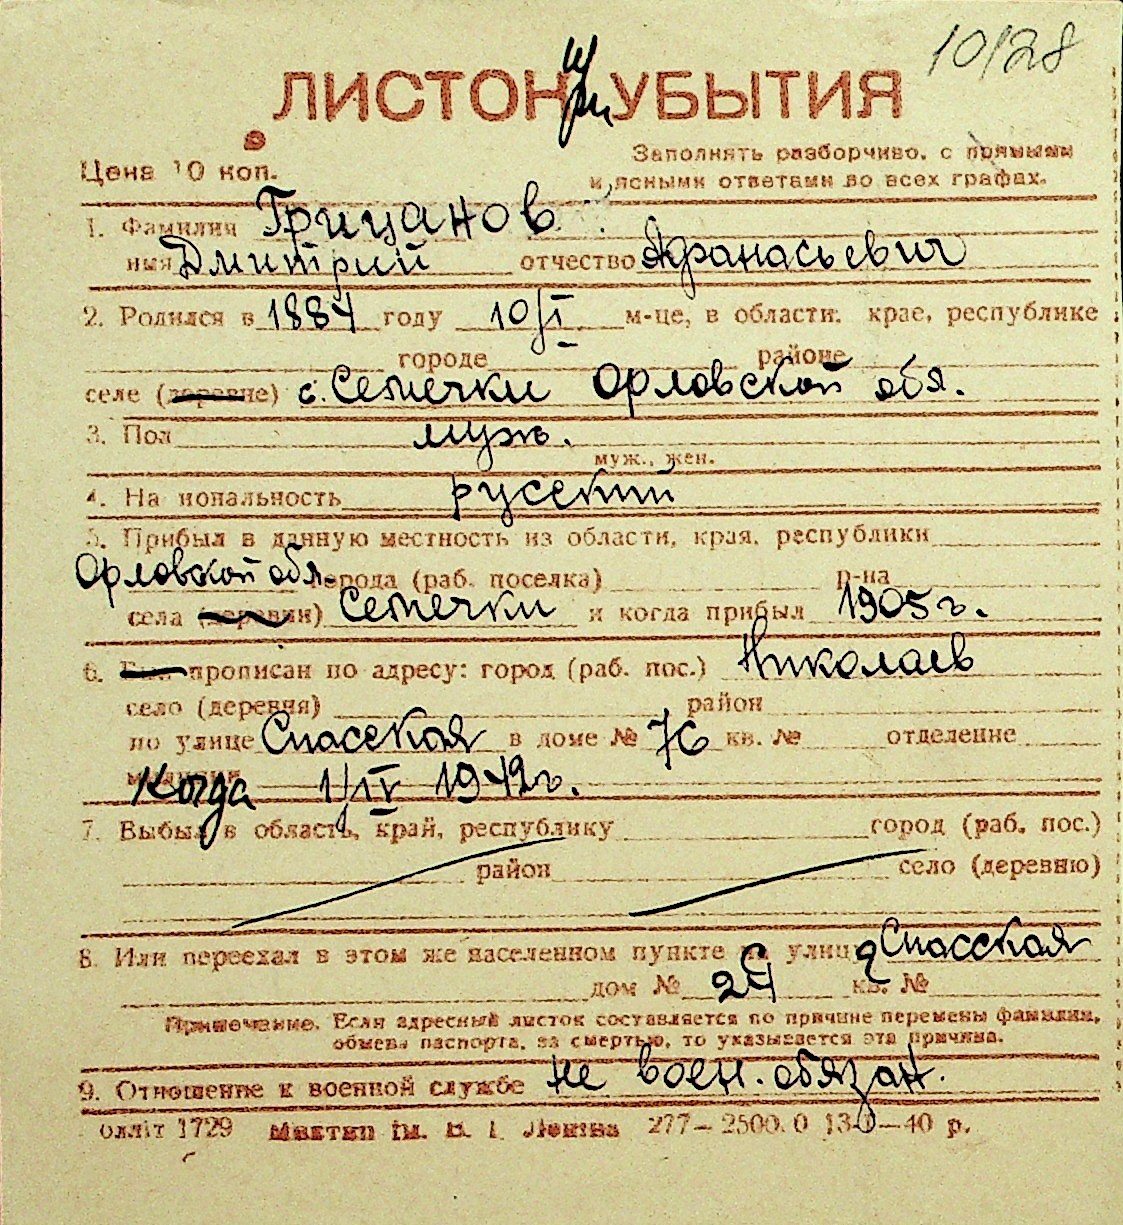 10/28
ЛИСТОК УБЫТИЯ
Цена 10 коп.
Заполнять разборчиво, с прямыми
и ясными ответами во всех графах.
1. Фамилия Грицанов
имя Дмитрий отчество Афанасьевич
2. Родился в 1884 году 10/I м-це, в области, крае, республике
городе районе
селе (деревне) с. Семечки Орловской обл.
3. Пол муж.
муж., жен.
4. Национальность русский
5. Прибыл в данную местность из области, края, республики
Орловской обл. города (раб. поселка) р-на
села (деревни) Семечки и когда прибыл 1905 г.
6. Был прописан по адресу: город (раб. пос.) Николаев
село (деревня) район
по улице Спасская в доме № 76 кв. № отделение
милиции Когда 1/IV 1942 г.
7. Выбыл в область, край, республику город (раб. пос.)
район село (деревню)
8. Или переехал в этом же населенном пункте на улицу Спасская
дом № кв. №
Примечание. Если адресный листок составляется по причине перемены фамилии,
обмена паспорта, за смертью, то указывается эта причина.
9. Отношение к военной службе не воен. обязан.
олліт 1729 ім. В. І. Леніна 277—2500.0 —40 р.